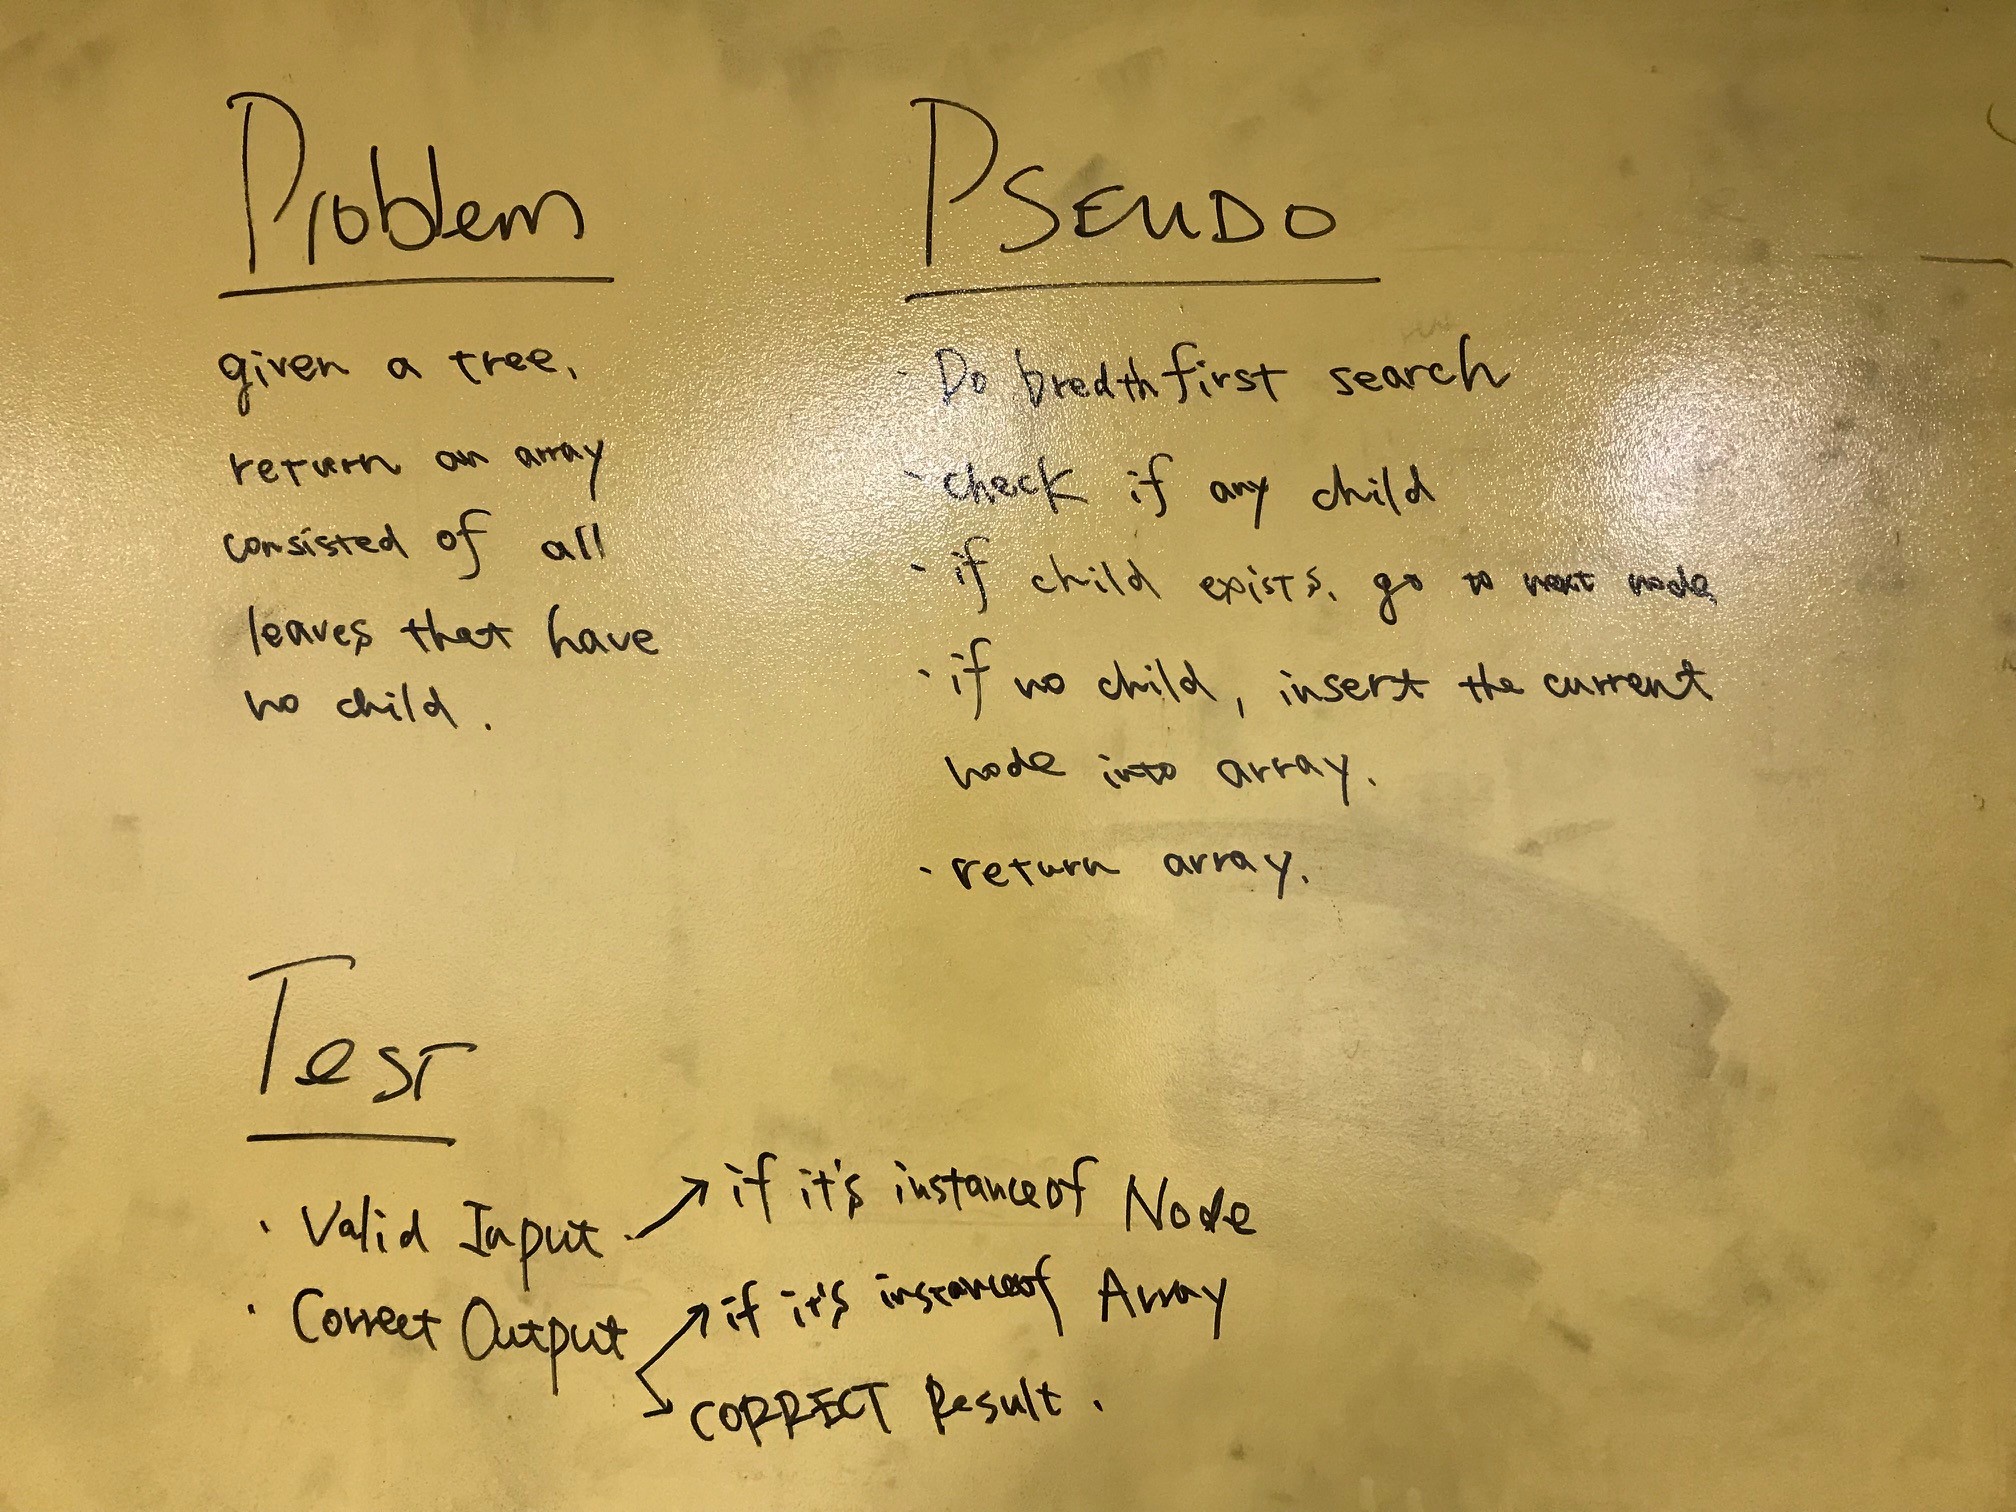 Problem
given a tree,
return an array
consisted of all
leaves that have
no child.
PSEUDO
· Do bredth first search
· check if any child
· if child exists, go to next node
· if no child, insert the current
node into array.
· return array.
Test
· Valid Input → if it's instanceof Node
· Correct Output → if it's instanceof Array
→ CORRECT Result.